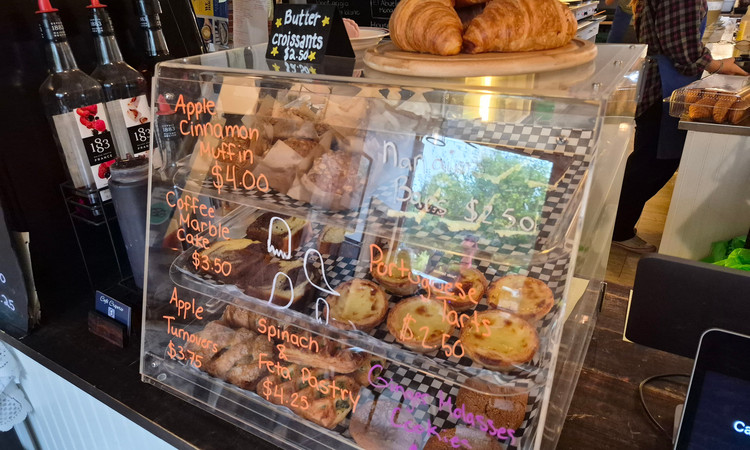 Butter
croissants
$2.50
Apple
Cinnamon
Muffin
$4.00
Bars $2.50
Coffee
Marble
Cake
$3.50
Portuguese
Tarts
$2.50
Apple
Turnovers
$3.75
Spinach
&
Feta Pastry
$4.25
Ginger Molasses
Cookies
1883
FRANCE
1883